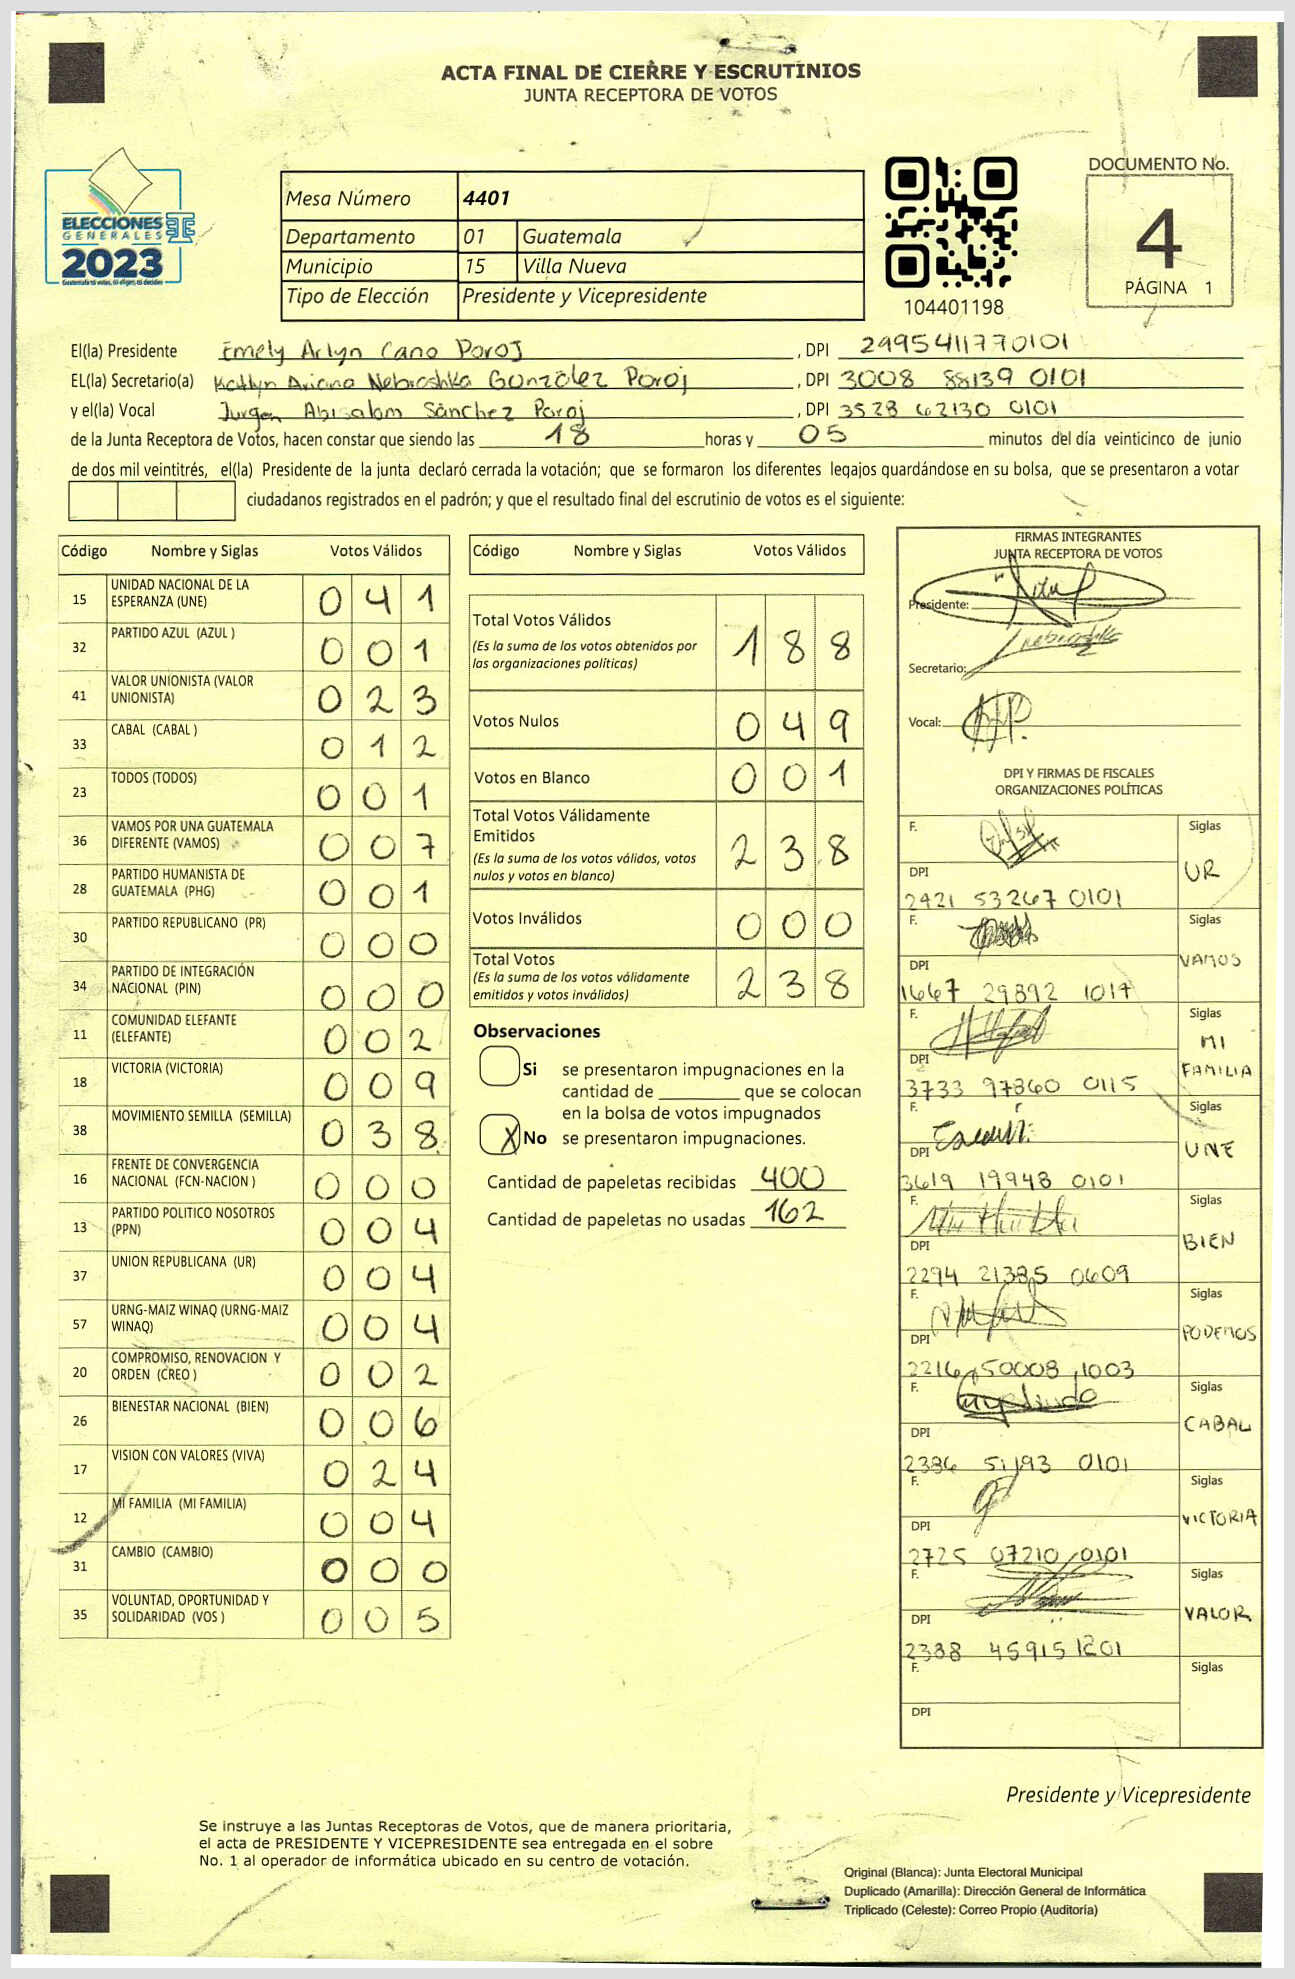 ACTA FINAL DE CIERRE Y ESCRUTINIOS
JUNTA RECEPTORA DE VOTOS
ELECCIONES
GENERALES
2023
Guatemala tú votas, tú eliges, tú decides
Mesa Número 4401
Departamento 01 Guatemala
Municipio 15 Villa Nueva
Tipo de Elección Presidente y Vicepresidente
104401198
DOCUMENTO No.
4
PÁGINA 1
El(la) Presidente Emely Arlyn Cano Poroj, DPI 2995411770101
EL(la) Secretario(a) Katlyn Ariana Nebroshka González Poroj, DPI 3008 88139 0101
y el(la) Vocal Jurgen Abisalom Sánchez Poroj, DPI 3528 62130 0101
de la Junta Receptora de Votos, hacen constar que siendo las 18 horas y 05 minutos del día veinticinco de junio
de dos mil veintitrés, el(la) Presidente de la junta declaró cerrada la votación; que se formaron los diferentes legajos guardándose en su bolsa, que se presentaron a votar
ciudadanos registrados en el padrón; y que el resultado final del escrutinio de votos es el siguiente:
Código Nombre y Siglas Votos Válidos
15 UNIDAD NACIONAL DE LA ESPERANZA (UNE) 0 4 1
32 PARTIDO AZUL (AZUL ) 0 0 1
41 VALOR UNIONISTA (VALOR UNIONISTA) 0 2 3
33 CABAL (CABAL ) 0 1 2
23 TODOS (TODOS) 0 0 1
36 VAMOS POR UNA GUATEMALA DIFERENTE (VAMOS) 0 0 7
28 PARTIDO HUMANISTA DE GUATEMALA (PHG) 0 0 1
30 PARTIDO REPUBLICANO (PR) 0 0 0
34 PARTIDO DE INTEGRACIÓN NACIONAL (PIN) 0 0 0
11 COMUNIDAD ELEFANTE (ELEFANTE) 0 0 2
18 VICTORIA (VICTORIA) 0 0 9
38 MOVIMIENTO SEMILLA (SEMILLA) 0 3 8
16 FRENTE DE CONVERGENCIA NACIONAL (FCN-NACION ) 0 0 0
13 PARTIDO POLITICO NOSOTROS (PPN) 0 0 4
37 UNION REPUBLICANA (UR) 0 0 4
57 URNG-MAIZ WINAQ (URNG-MAIZ WINAQ) 0 0 4
20 COMPROMISO, RENOVACION Y ORDEN (CREO ) 0 0 2
26 BIENESTAR NACIONAL (BIEN) 0 0 6
17 VISION CON VALORES (VIVA) 0 2 4
12 MI FAMILIA (MI FAMILIA) 0 0 4
31 CAMBIO (CAMBIO) 0 0 0
35 VOLUNTAD, OPORTUNIDAD Y SOLIDARIDAD (VOS ) 0 0 5
Código Nombre y Siglas Votos Válidos
Total Votos Válidos 1 8 8
(Es la suma de los votos obtenidos por
las organizaciones políticas)
Votos Nulos 0 4 9
Votos en Blanco 0 0 1
Total Votos Válidamente
Emitidos 2 3 8
(Es la suma de los votos válidos, votos
nulos y votos en blanco)
Votos Inválidos 0 0 0
Total Votos 2 3 8
(Es la suma de los votos válidamente
emitidos y votos inválidos)
Observaciones
Si se presentaron impugnaciones en la
cantidad de ________ que se colocan
en la bolsa de votos impugnados
X No se presentaron impugnaciones.
Cantidad de papeletas recibidas 400
Cantidad de papeletas no usadas 162
FIRMAS INTEGRANTES
JUNTA RECEPTORA DE VOTOS
Presidente:
Secretario:
Vocal:
DPI Y FIRMAS DE FISCALES
ORGANIZACIONES POLÍTICAS
F. Siglas
UR
DPI
2421 53267 0101
F. Siglas
VAMOS
DPI
1667 29892 1017
F. Siglas
MI
FAMILIA
DPI
3733 97860 0115
F. Siglas
UNE
DPI
3619 19948 0101
F. Siglas
BIEN
DPI
2294 21385 0609
F. Siglas
PODEMOS
DPI
2216 50008 1003
F. Siglas
CABAL
DPI
2386 51193 0101
F. Siglas
VICTORIA
DPI
2725 07210 0101
F. Siglas
VALOR
DPI
2338 45915 1201
F. Siglas
DPI
Presidente y Vicepresidente
Se instruye a las Juntas Receptoras de Votos, que de manera prioritaria,
el acta de PRESIDENTE Y VICEPRESIDENTE sea entregada en el sobre
No. 1 al operador de informática ubicado en su centro de votación.
Original (Blanca): Junta Electoral Municipal
Duplicado (Amarilla): Dirección General de Informática
Triplicado (Celeste): Correo Propio (Auditoría)